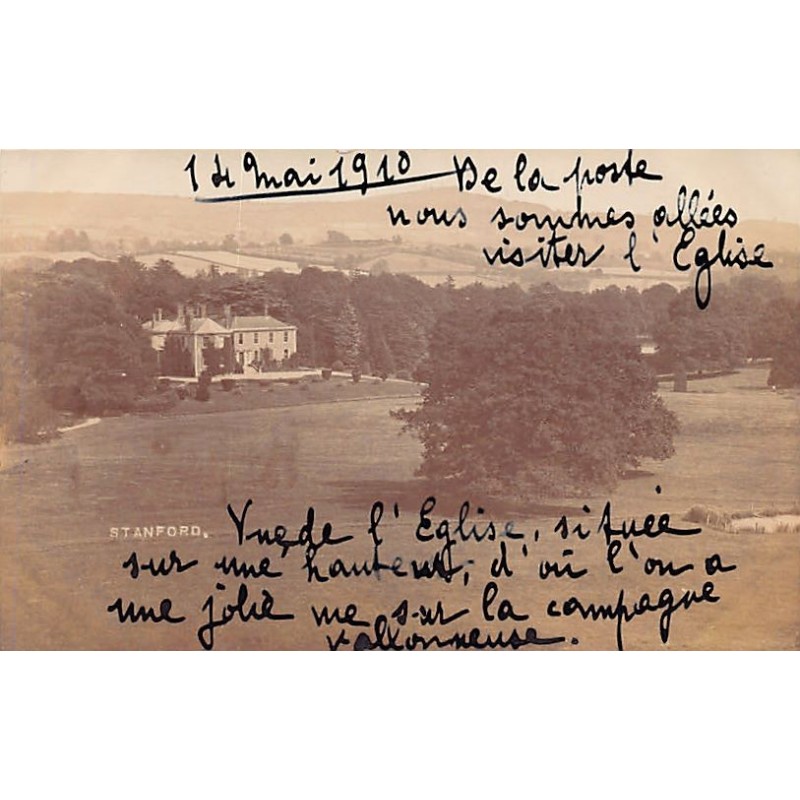 14 Mai 1910 De la poste
nous sommes allées
visiter l'Église
STANFORD.
Vue de l'Eglise, située
sur une hauteur, d'où l'on a
une jolie vue sur la campagne
vallonneuse.